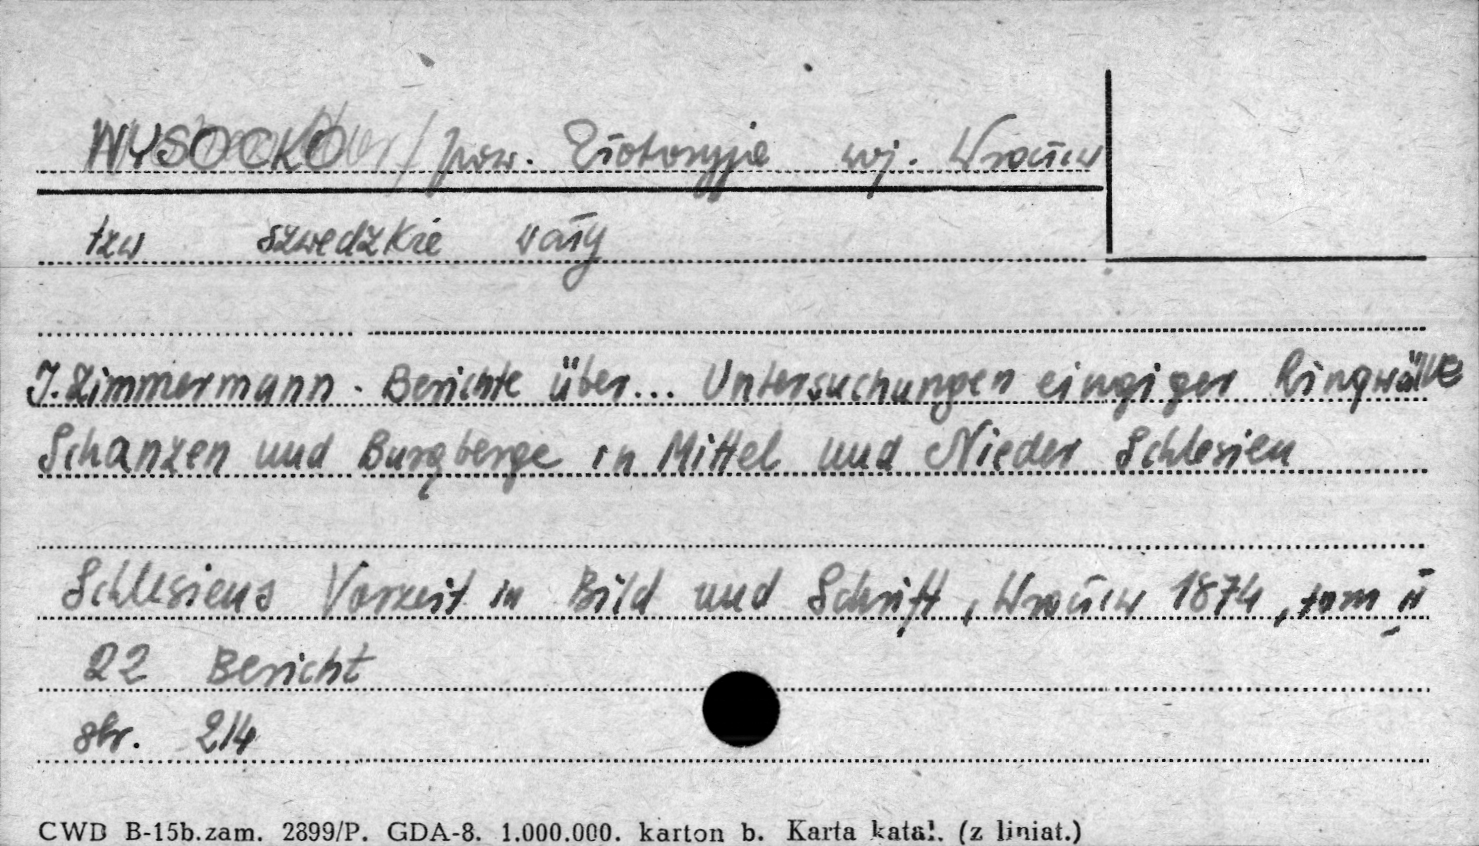 WYSOCKO / pow. Złotoryja woj. Wrocław
tzw szwedzkie wały
J. Zimmermann. Berichte über... Untersuchungen eingiger Ringwälle
Schanzen und Burgberge in Mittel und Nieder Schlesien
Schlesiens Vorzeit in Bild und Schrift, Wrocław 1874, tom II
22 Bericht
str. 214
CWD B-15b.zam. 2899/P. GDA-8. 1.000.000. karton b. Karta katal. (z liniat.)